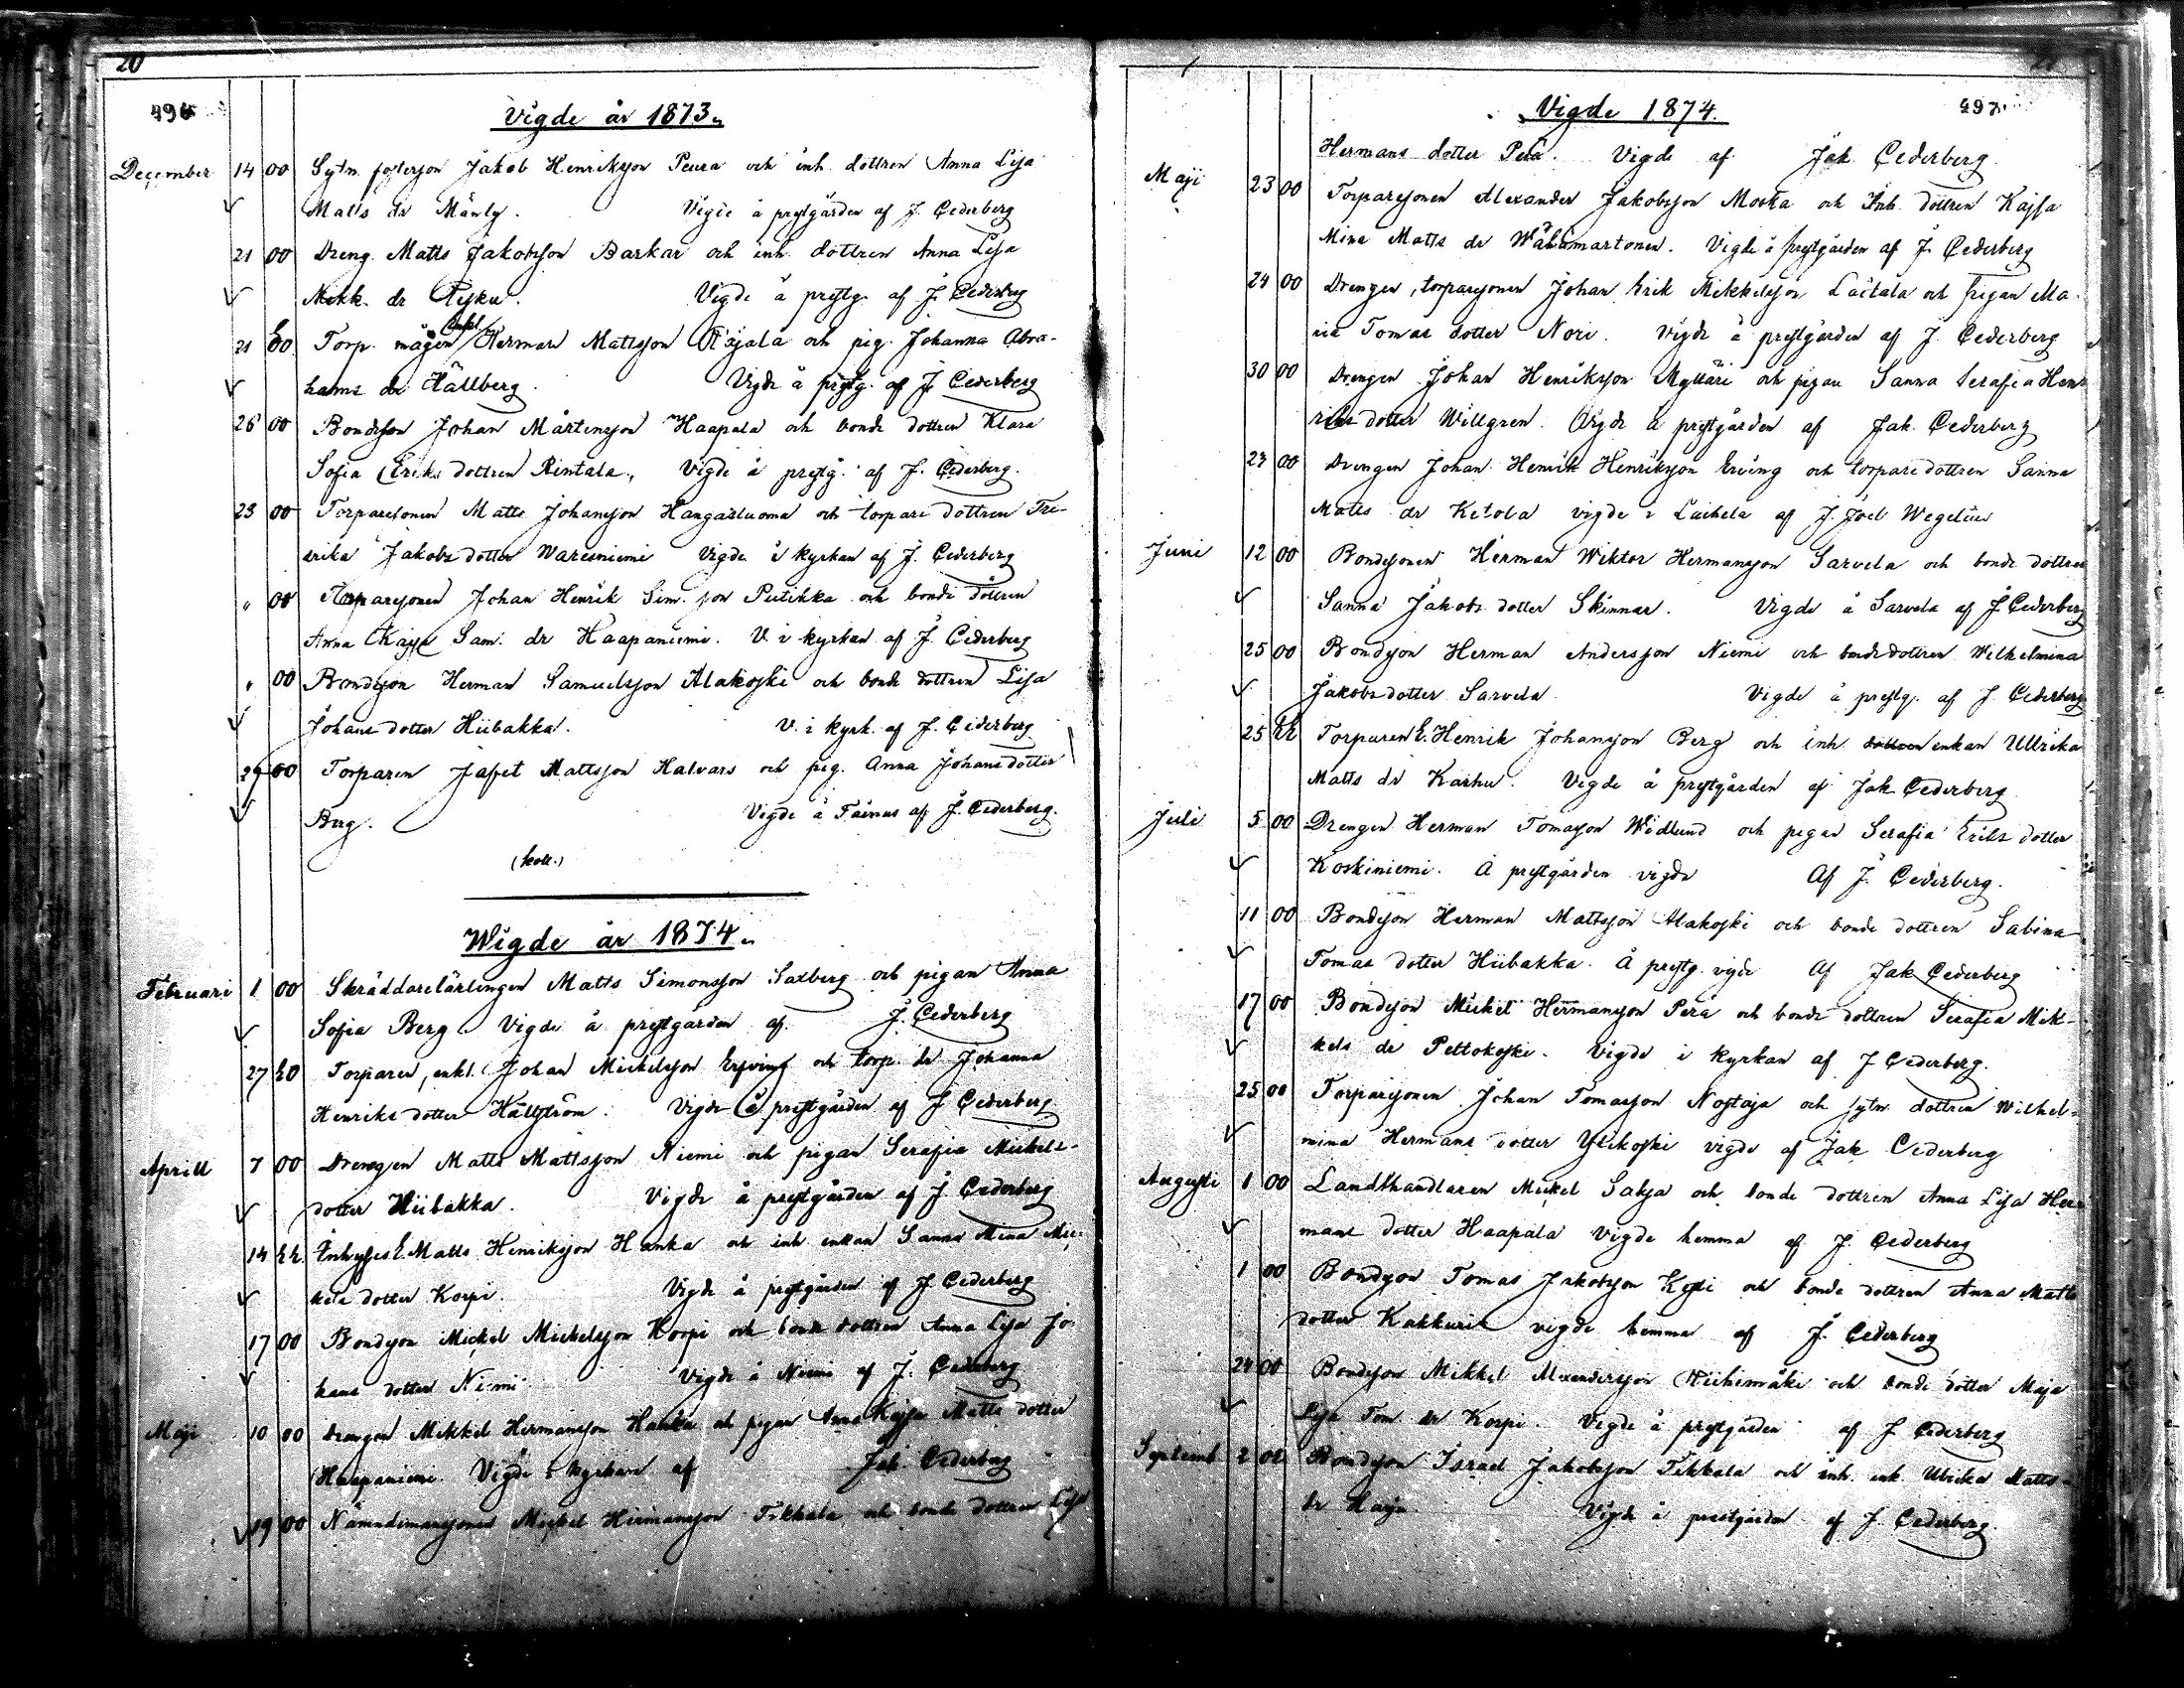 20
496
Vigde år 1873.
December 14 00 Sytn. fosterson Jakob Henriksson Peura och inh. dottren Anna Lisa
Matts dr Mänty. Vigde å prestgården af J. Cederberg
21 00 Dreng. Matts Jakobsson Barkar och inh. dottren Anna Lisa
Mikk. dr Pesku. Vigde å prestg. af J. Cederberg
21 E0 Torp. mågen Enkl. Herman Mattsson Äijälä och pig. Johanna Abra-
hams dr Hällberg. Vigde å prestg. af J. Cederberg
26 00 Bondeson Johan Mårtensson Haapala och bonde dottren Klara
Sofia Eriks dottren Rintala., Vigde å prestg. af J. Cederberg.
28 00 Torparesonen Matts Johansson Hangasluoma och torpare dottren Fre-
drika Jakobs dotter Waresniemi Vigde i kyrkan af J. Cederberg
" 00 Torparesonen Johan Henrik Sim. son Putikka och bonde dottren
Anna Kajsa Sam. dr Haapaniemi. V. i kyrkan af J. Cederberg
" 00 Bondeson Herman Samuelsson Alakoski och bonde dottren Lisa
Johans dotter Hiibakka. V. i kyrk. af J. Cederberg
29 00 Torparen Jafet Mattsson Halvars och pig. Anna Johans dotter
Berg. Vigde å af J. Cederberg.
(koll.)
Wigde år 1874.
Februari 1 00 Skräddarelärlingen Matts Simonsson Saxberg och pigan Anna
Sofia Berg. Vigde å prestgården af J. Cederberg
27 E0 Torparen, enkl. Johan Mickelsson Erfving och torp. dr Johanna
Henriks dotter Hällström. Vigde å prestgården af J Cederberg
Aprill 7 00 Drengen Matts Mattsson Niemi och pigan Serafia Mickels-
dotter Hiibakka. Vigde å prestgården af J Cederberg
14 EE. Inhyses E. Matts Henriksson Hanka och inh. enkan Sanna Mina Mic-
kels dotter Korpi. Vigde å prestgården af J. Cederberg
17 00 Bondeson Mickel Mickelsson Korpi och bonde dottren Anna Lisa Jo-
hans dotter Niemi. Vigde å Niemi af J. Cederberg
Maji 10 00 Drengen Mikkel Hermansson Hanka och pigan Anna Kajsa Matts dotter
Haapaniemi. Vigde i kyrkan af Jak. Cederberg
19 00 Nämndemansonen Mickel Hermansson Tikkala och bonde dottren Lisa
Vigde 1874.
497
Hermans dotter Perä. Vigde af Jak Cederberg
Maji 23 00 Torparesonen Alexander Jakobsson Moska och Inh. dottren Kajsa
Mina Matts dr Wähämartonen. Vigde å prestgården af J. Cederberg
24 00 Drengen, torparesonen Johan Erik Mikkelsson Laitala och pigan Ma-
ria Tomas dotter Nori. Vigde å prestgården af J. Cederberg
30 00 Drengen Johan Henriksson Mylläri och pigan Sanna Serafia Hen-
riks dotter Willgren. Vigde å prestgården af Jak. Cederberg
23 00 Drengen Johan Henrik Henriksson Erving och torpare dottren Sanna
Matts dr Ketola vigde i Luchela af J. Joel Wegelius
Juni 12 00 Bondesonen Herman Wiktor Hermansson Sarvela och bonde dottren
Sanna Jakobs dotter Skinnar. Vigde å Sarvela af J Cederberg
25 00 Bondeson Herman Andersson Niemi och bondedottren Wilhelmina
Jakobsdotter Sarvela. Vigde å prestg. af J. Cederberg
25 EE Torparen E. Henrik Johansson Berg och inh. dottren enkan Ullrika
Matts dr Karhu. Vigde å prestgården af Jak Cederberg
Juli 5 00 Drengen Herman Tomasson Widlund och pigan Serafia Eriks dotter
Koskiniemi. Å prestgården vigde Af J. Cederberg.
11 00 Bondeson Herman Mattsson Alakoski och bonde dottren Sabina
Tomas dotter Hiibakka. Å prestg. vigde Af Jak Cederberg
17 00 Bondeson Mickel Hermansson Perä och bonde dottren Serafia Mik-
kels dr Peltokoski. Vigde i kyrkan af J Cederberg.
25 00 Torparesonen Johan Tomasson Nostaja och sytn. dottren Wilhel-
mina Hermans dotter Ylikoski vigde af Jak Cederberg
Augusti 1 00 Landthandlaren Mickel Saksa och bonde dottren Anna Lisa Her-
mans dotter Haapala Vigde hemma af J. Cederberg
1 00 Bondeson Tomas Jakobsson Kesti och bonde dottren Anna Matts
dotter Kakkuri vigde hemma af J. Cederberg
24 00 Bondeson Mikkel Alexandersson Riihimäki och bonde dotter Maja
Lisa Tom. dr Korpi. Vigde å prestgården af J Cederberg
Septemb 2 0E Bondeson Israel Jakobsson Tikkala och inh. enk. Ulrika Matts-
dr Harju Vigde å prestgården af J. Cederberg.